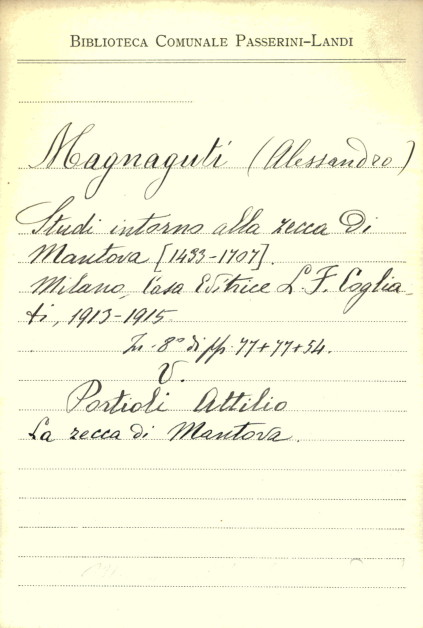 BIBLIOTECA COMUNALE PASSERINI-LANDI
Magnaguti (Alessandro)
Studi intorno alla zecca di
Mantova [1433-1707].
Milano, Casa Editrice L. F. Coglia-
ti, 1913-1915
In-8° di pp. 77+77+54.
V.
Portioli Attilio
La zecca di Mantova.